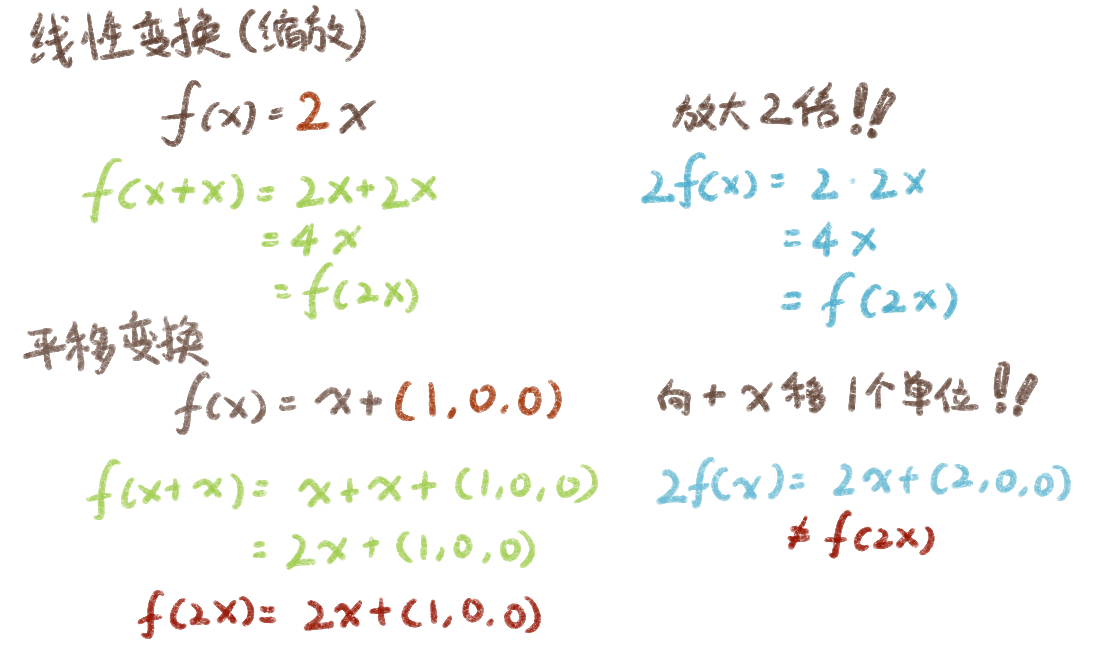 线性变换(缩放)
f(x)=2x
放大2倍!!
f(x+x)=2x+2x
=4x
=f(2x)
2f(x)=2·2x
=4x
=f(2x)
平移变换
f(x)=x+(1,0.0)
向+x移1个单位!!
f(x+x)=x+x+(1,0,0)
=2x+(1,0,0)
f(2x)=2x+(1,0.0)
2f(x)=2x+(2,0,0)
≠f(2x)